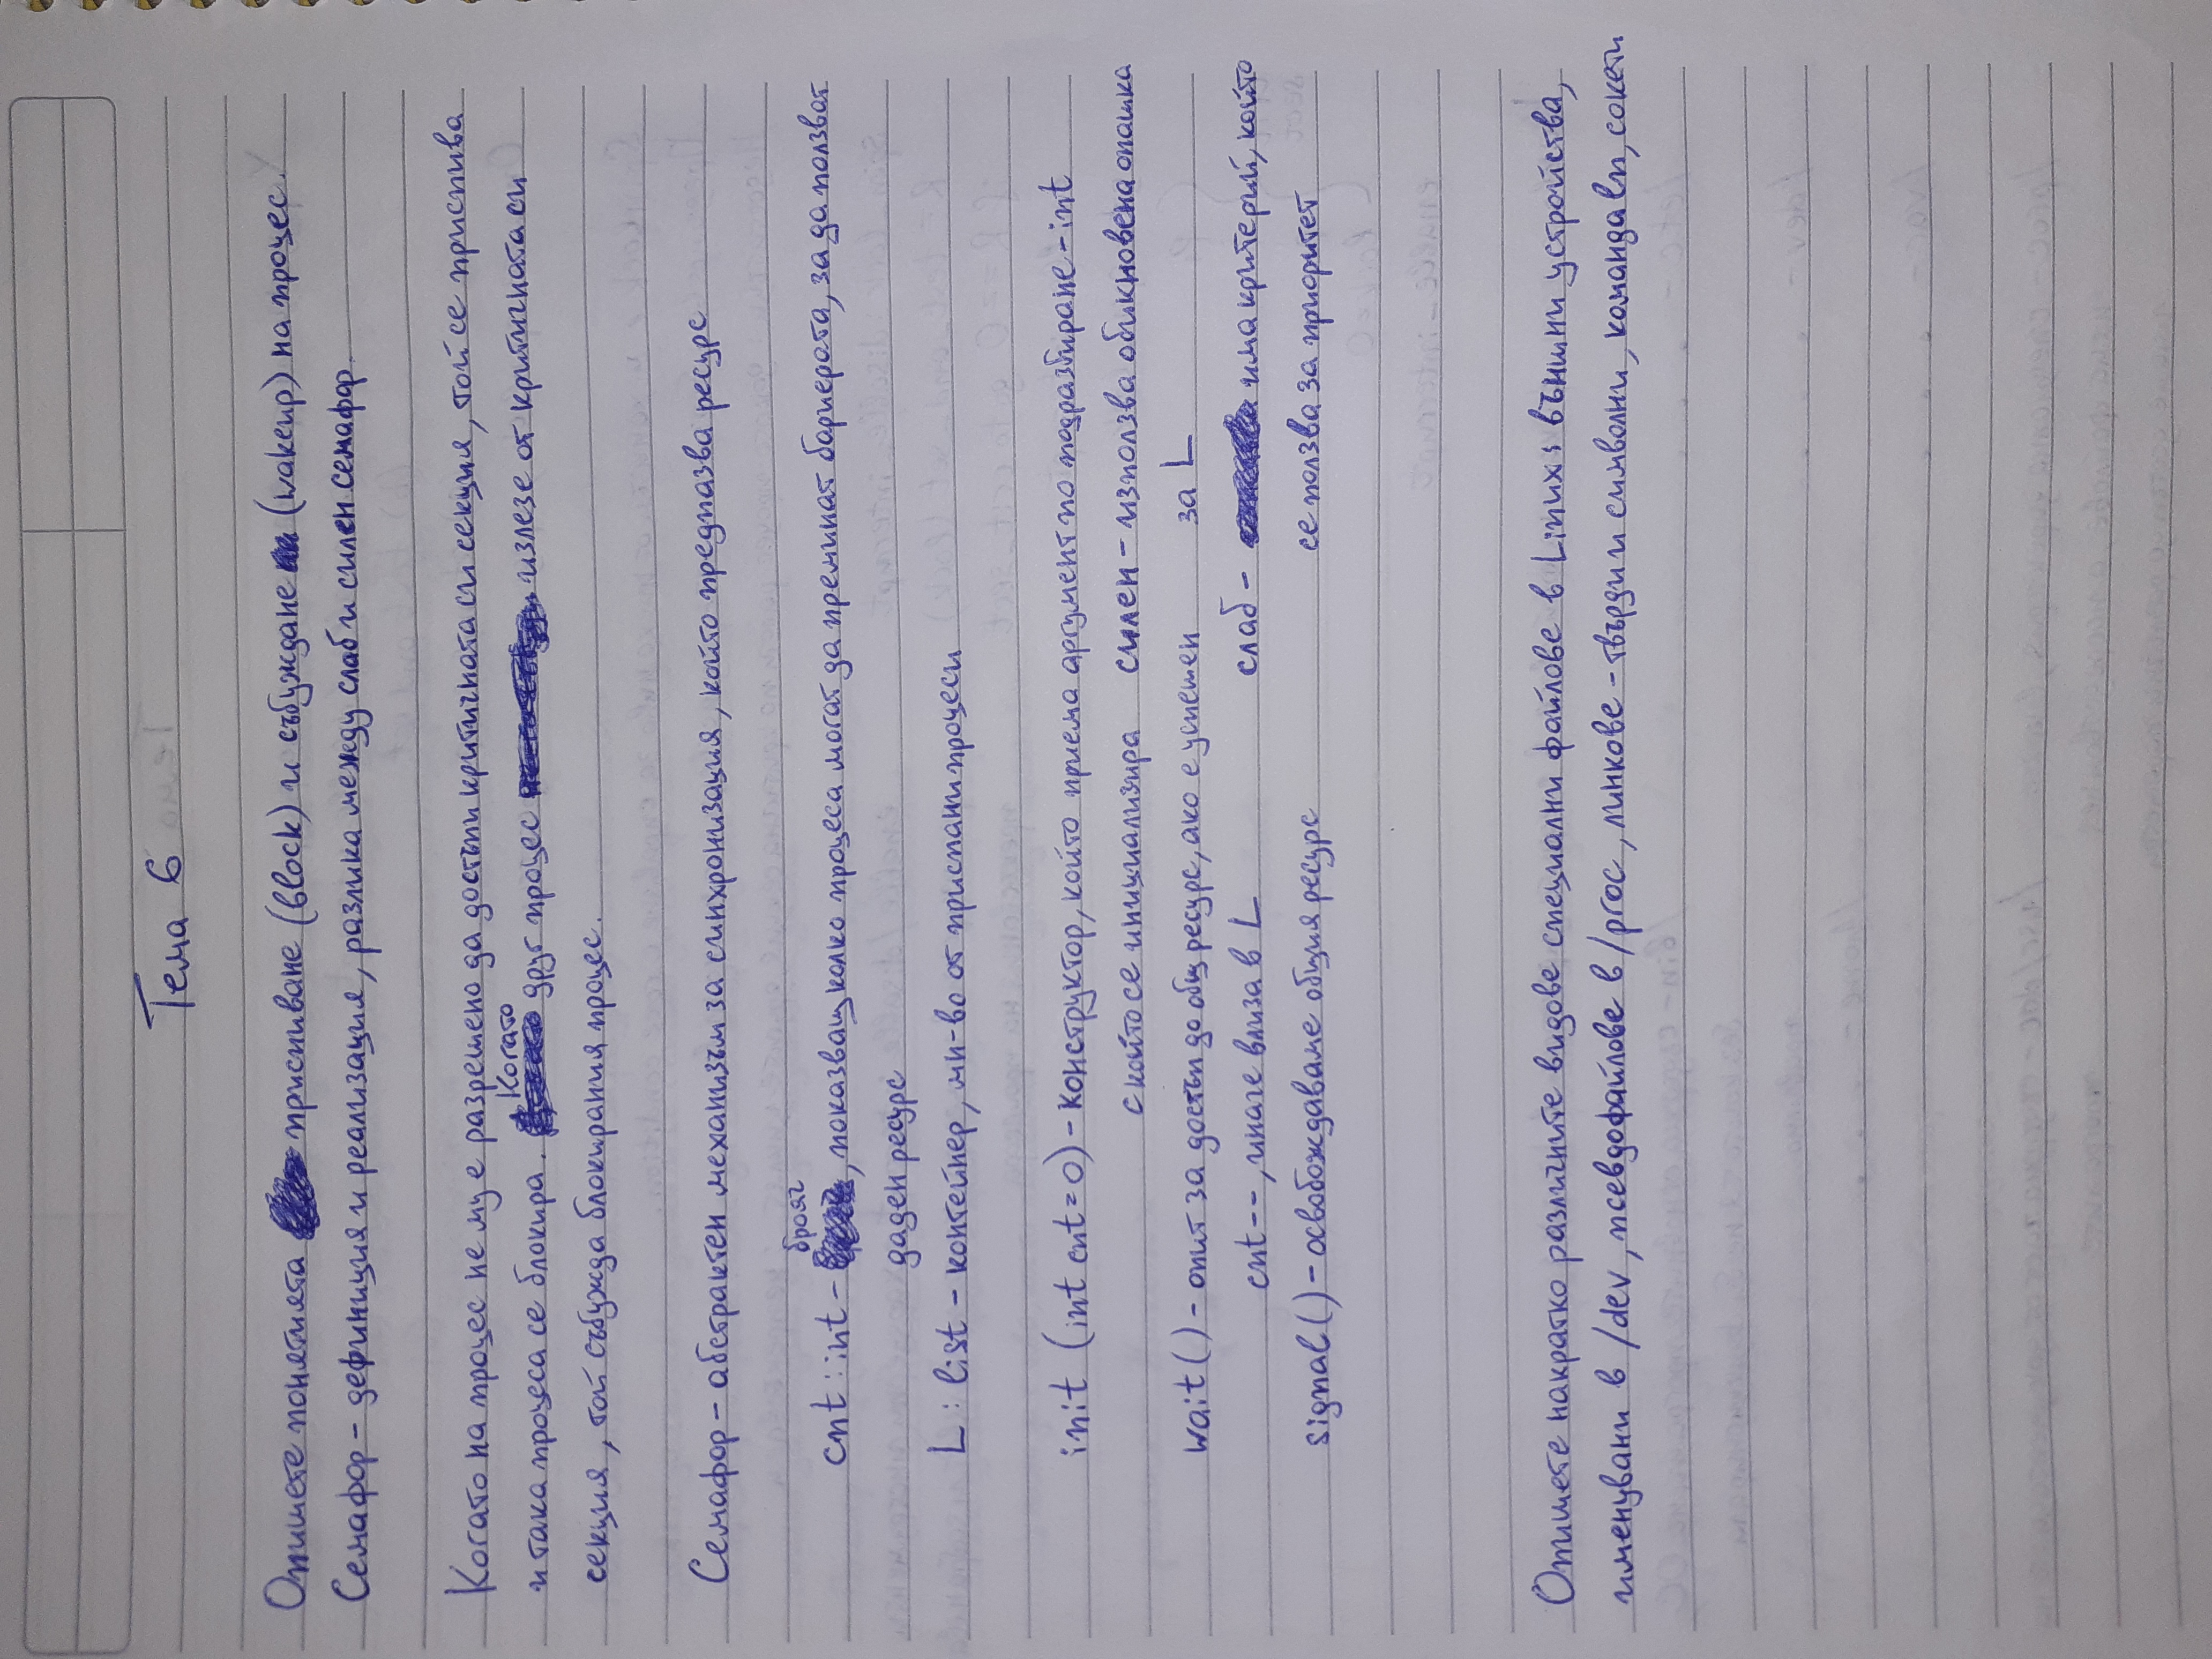 Тема 6
Опишете понятията приспиване (block) и събуждане (wakeup) на процес.
Семафор - дефиниция и реализация, разлика между слаб и силен семафор.
Когато на процес не му е разрешено да достъпи критичната си секция, той се приспива
и така процеса се блокира. Когато друг процес излезе от критичната си
секция, той събужда блокирания процес.
Семафор - абстрактен механизъм за синхронизация, който предпазва ресурс
cnt : int - брояч, показващ колко процеса могат да преминат бариерата, за да ползват
даден ресурс
L : list - контейнер, мн-во от приспани процеси
init (int cnt = 0) - конструктор, който приема аргумент по подразбиране - int
с който се инициализира
wait() - опит за достъп до общ ресурс, ако е успешен
cnt--, иначе влиза в L
signal() - освобождаваме общия ресурс
силен - използва обикновена опашка
за L
слаб - има критерий, който
се ползва за приоритет
Опишете накратко различните видове специални файлове в Linux: външни устройства,
именувани в /dev, псевдофайлове в /proc, линкове - твърди и символни, команда ln, сокети